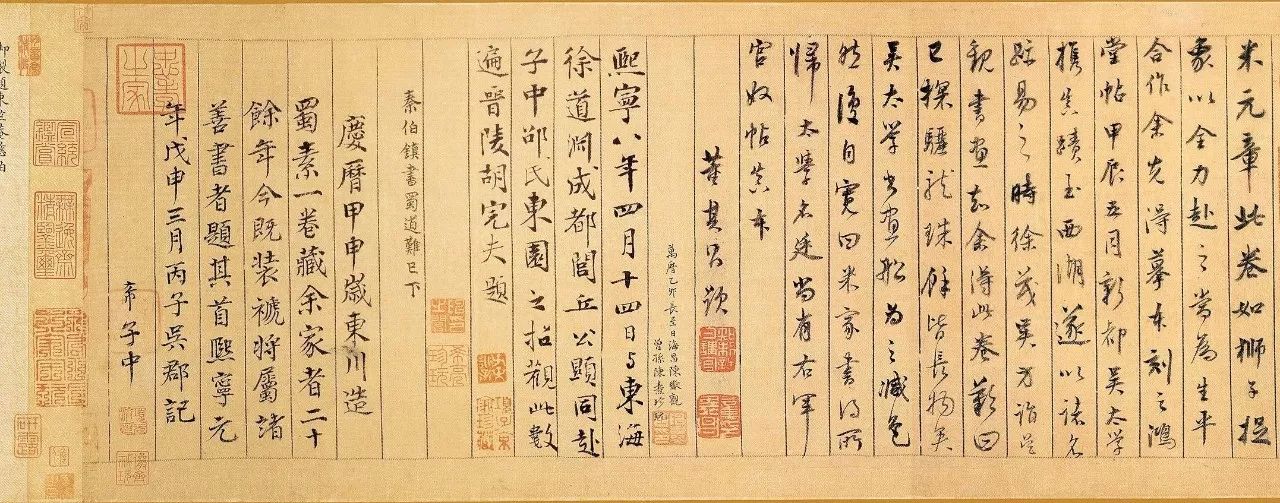 米元章此卷如獅子捉
象以全力赴之當為生平
合作余先得摹本刻之鴻
堂帖甲辰五月新都吳太學
携真蹟至西湖遂以諸名
跡易之時徐茂吳方詣吳
觀書畫知余得此卷歎曰
已探驪龍珠餘皆長物矣
吳太學書畫船為之減色
然後自寬曰米家書得所
歸太學名廷尚有右軍
官奴帖真本
董其昌題
萬曆乙卯長至日海昌陳瓛觀
曾孫陳
熙寧八年四月十四日与東海
徐道淵成都閭丘公顯同赴
子中邵氏東園之招觀此數
遍晉陵胡完夫題
秦伯鎮書蜀道難已下
慶曆甲申歲東川造
蜀素一卷藏余家者二十
餘年今既装褫將屬諸
善書者題其首熙寧元
年戊申三月丙子吳郡記
子中